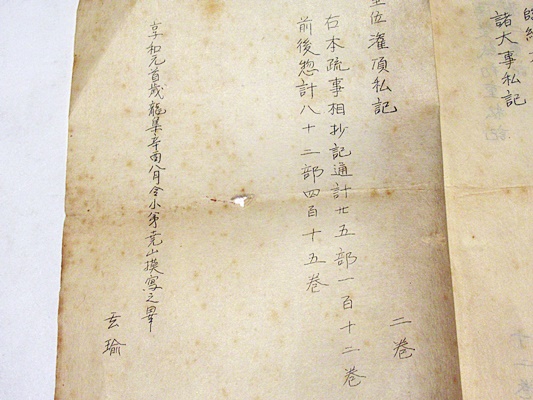 諸大事私記
位灌頂私記 二巻
右本疏事相抄記通計廿五部一百十二巻
前後惣計八十二部四百十五巻
享和元首歳龍集辛酉八月令小弟堯山摸寫之畢
玄瑜